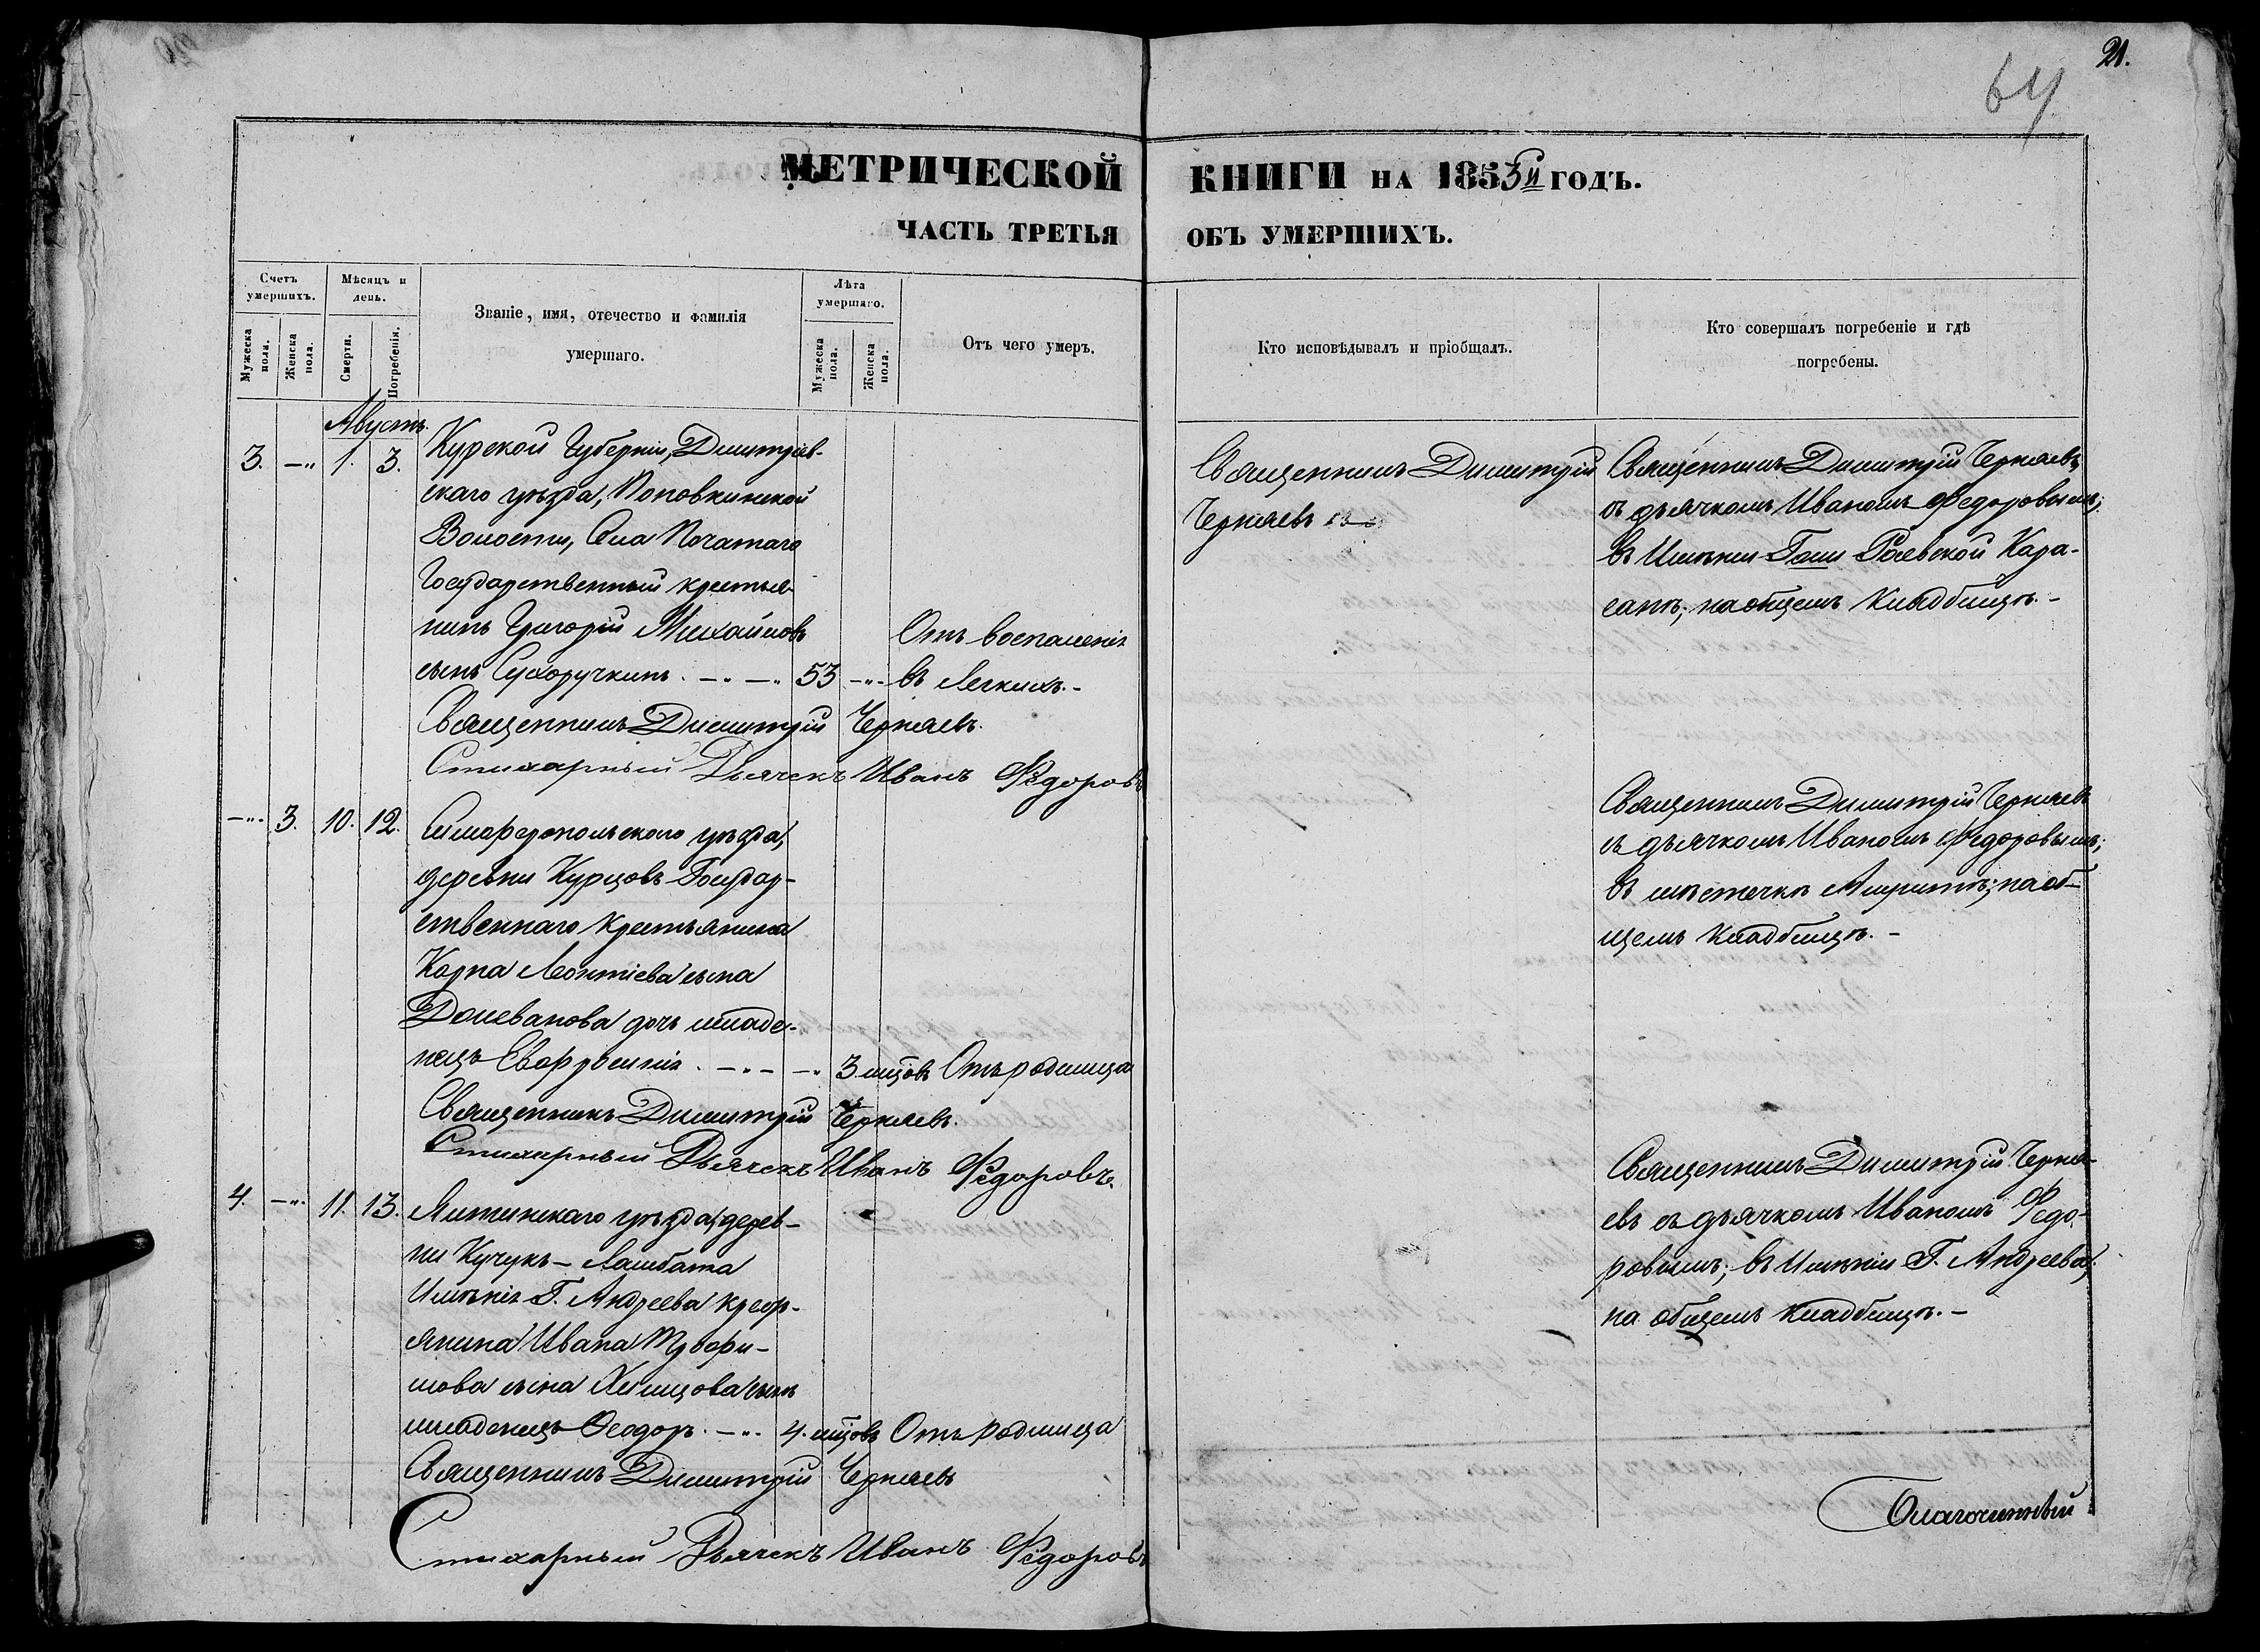 21.
64
МЕТРИЧЕСКОЙ КНИГИ НА 1853й ГОДЪ.
ЧАСТЬ ТРЕТЬЯ ОБЪ УМЕРШИХЪ.
Счетъ умершихъ.
Мужеска пола.
Женска пола.
Мѣсяцъ и день.
Смерти.
Погребенія.
Званіе, имя, отечество и фамилія
умершаго.
Лѣта умершаго.
Мужеска пола.
Женска пола.
Отъ чего умеръ.
Кто исповѣдывалъ и пріобщалъ.
Кто совершалъ погребеніе и гдѣ
погребены.
Августъ.
3. —"— 1. 3. Курской Губерніи, Дмитріев-
скаго уѣзда, Поповкинской
Волости, Села Початаго
Государственный крестья-
нинъ Григорій Михайловъ
сынъ Сухоручкинъ. 53 —"— Отъ воспаленія
въ Легкихъ.-
Священникъ Димитрій Черняевъ.
Стихарный Дьячекъ Иванъ Федоровъ
Священникъ Димитрій
Черняевъ
Священникъ Димитрій Черняевъ
съ дьячкомъ Иваномъ Федоровымъ;
въ Имѣніи Гжи Раевской Кара-
санѣ; на общемъ Кладбищѣ.-
—"— 3. 10. 12. Симферопольскаго уѣзда,
деревни Курцовъ Государ-
ственнаго крестьянина
Карпа Леонтіева сына
Долеванова дочь младе-
нецъ Евфросинія. 3. мцовъ Отъ родимца
Священникъ Димитрій Черняевъ.
Стихарный Дьячекъ Иванъ Федоровъ.
Священникъ Димитрій Черняевъ
съ дьячкомъ Иваномъ Федоровымъ;
въ мѣстечкѣ; на об-
щемъ Кладбищѣ.-
4. —"— 11. 13. Ялтинскаго уѣзда, дерев-
ни Кучукъ-Ламбата
Имѣнія Г. Андреева крест-
янина Ивана Трофи-
мова сына сынъ
младенецъ Ѳеодоръ. 4. мцовъ Отъ родимца
Священникъ Димитрій Черняевъ
Стихарный Дьячекъ Иванъ Федоровъ
Священникъ Димитрій Черня-
евъ съ дьячкомъ Иваномъ Федо-
ровымъ; въ Имѣніи Г. Андреева;
на общемъ Кладбищѣ.-
Благочинный